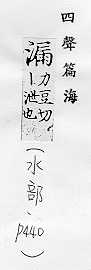 四聲篇海
漏力豆切
丨泄也
(水部、
p440)